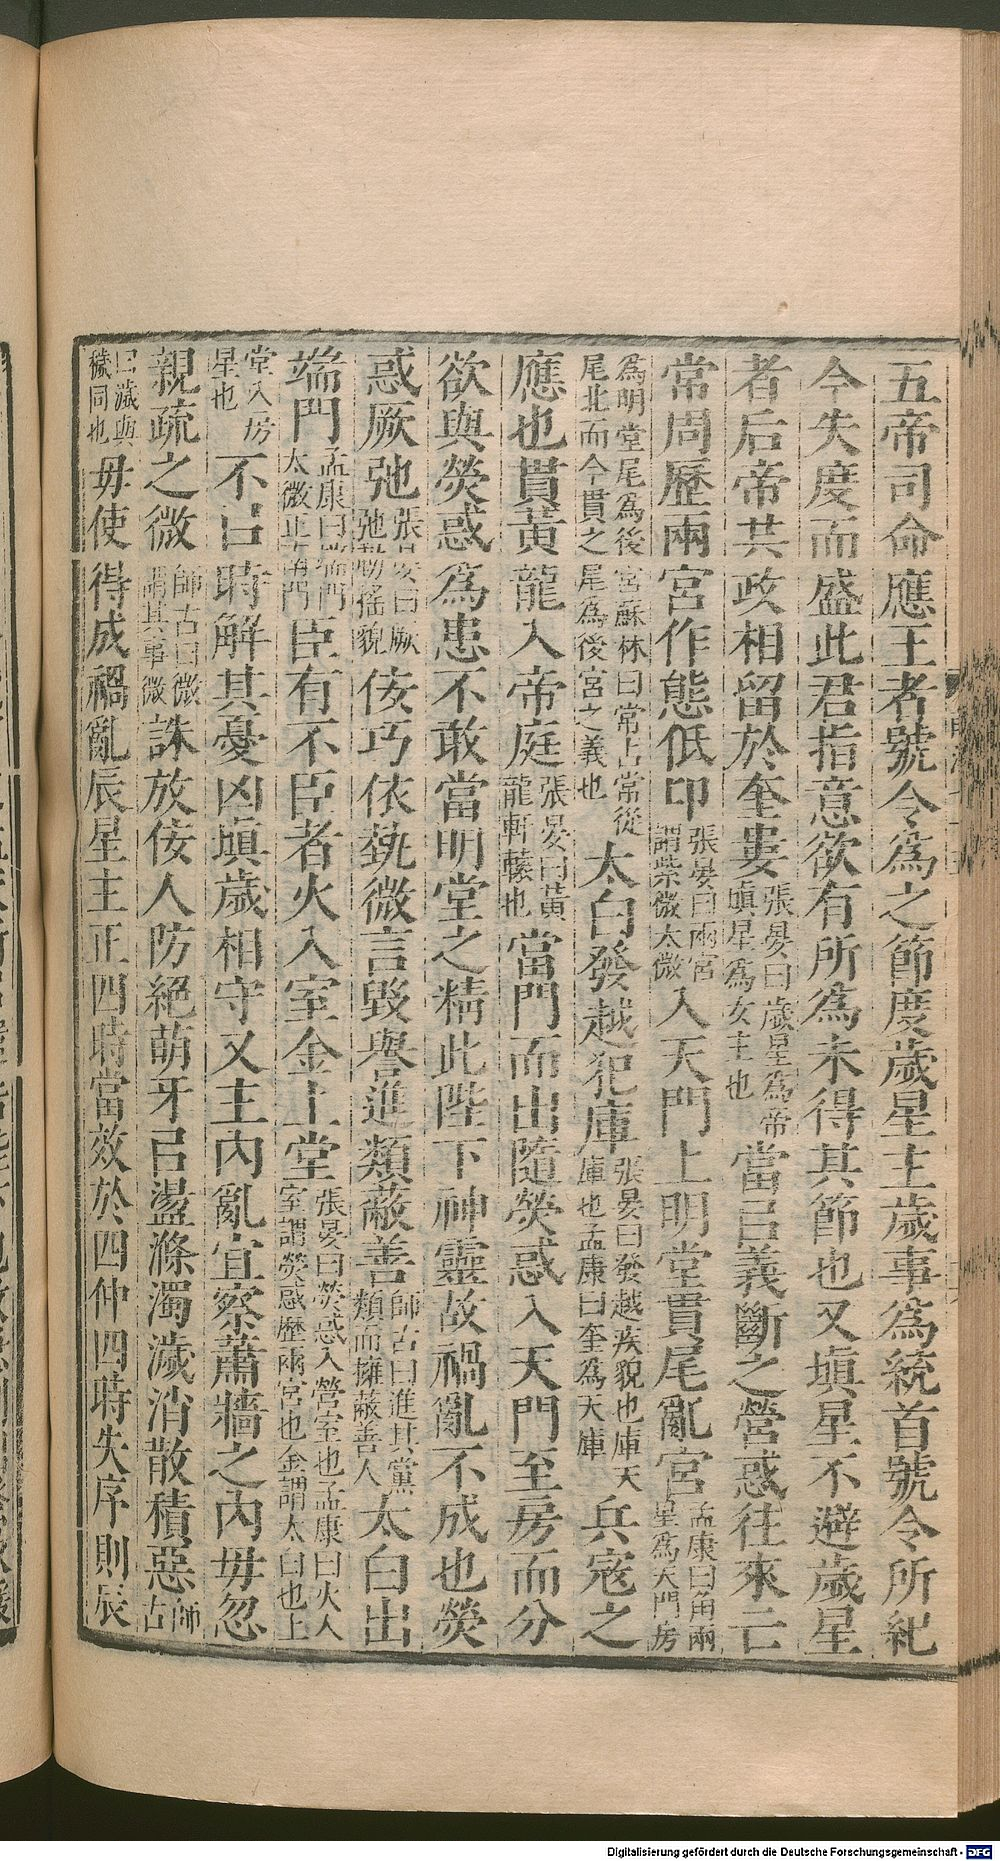 五帝司命應王者號令為之節度歲星主歲事為統首號令所紀
今失度而盛此君指意欲有所為未得其節也又塡星不避歲星
者后帝共政相留於奎婁張晏曰歲星為帝塡星為女主也當㠯義斷之營惑往來亡
常周歷兩宮作態低卬張晏曰兩宮謂紫微太微入天門上明堂貫尾亂宮孟康曰角兩星為天門房
為明堂尾為後宮蘇林曰常占常從尾北而今貫之尾為後宮之義也太白發越犯庫張晏曰發越疾貌也庫天庫也孟康曰奎為天庫兵寇之
應也貫黃龍入帝庭張晏曰黃龍軒轅也當門而出隨熒惑入天門至房而分
欲與熒惑為患不敢當明堂之精此陛下神靈故禍亂不成也熒
惑厥弛張晏曰厥弛動搖貌佞巧依埶微言毀譽進類蔽善師古曰進其黨類而擁蔽善人太白出
端門孟康曰端門太微正南門臣有不臣者火入室金上堂張晏曰熒惑入營室也孟康曰火入室謂熒惑歷兩宮也金謂太白也上
堂入房星也不㠯時解其憂凶塡歲相守又主內亂宜察蕭牆之內毋忽
親疏之微師古曰微謂其事微誅放佞人防絕萌牙㠯盪滌濁濊消散積惡師古
曰濊與穢同也毋使得成禍亂辰星主正四時當效於四仲四時失序則辰
Digitalisierung gefördert durch die Deutsche Forschungsgemeinschaft - DFG